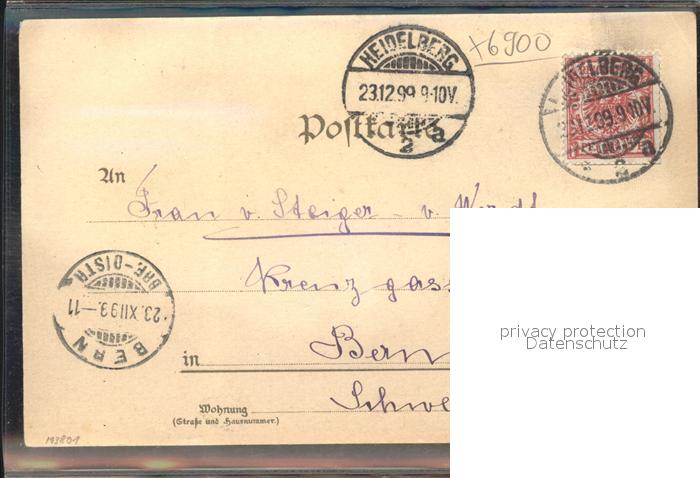 HEIDELBERG
23.12.99.9-10V.
2 a
+6900
HEIDELBERG
.99.9-10V.
2 a
Postkarte
An
Frau v. Steiger - v.
Kreuzgass
BERN
BRF-DISTR.
23.XII.99.-11
in Bern
Schwe
Wohnung
(Straße und Hausnummer.)
privacy protection
Datenschutz